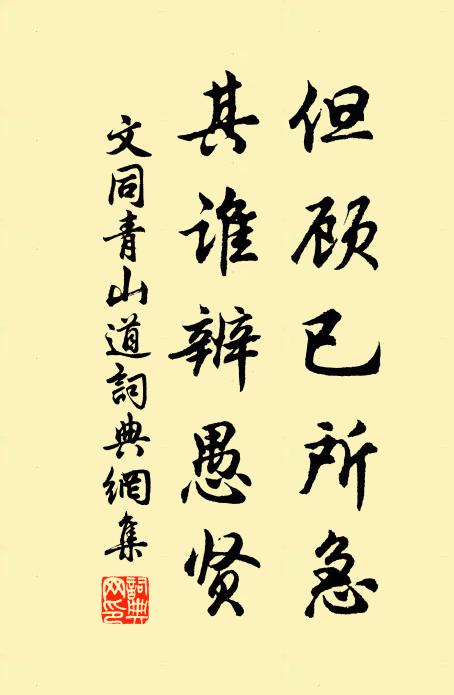 但顾已所急
其谁辨愚贤
文同青山道詞典網集
詞典网印